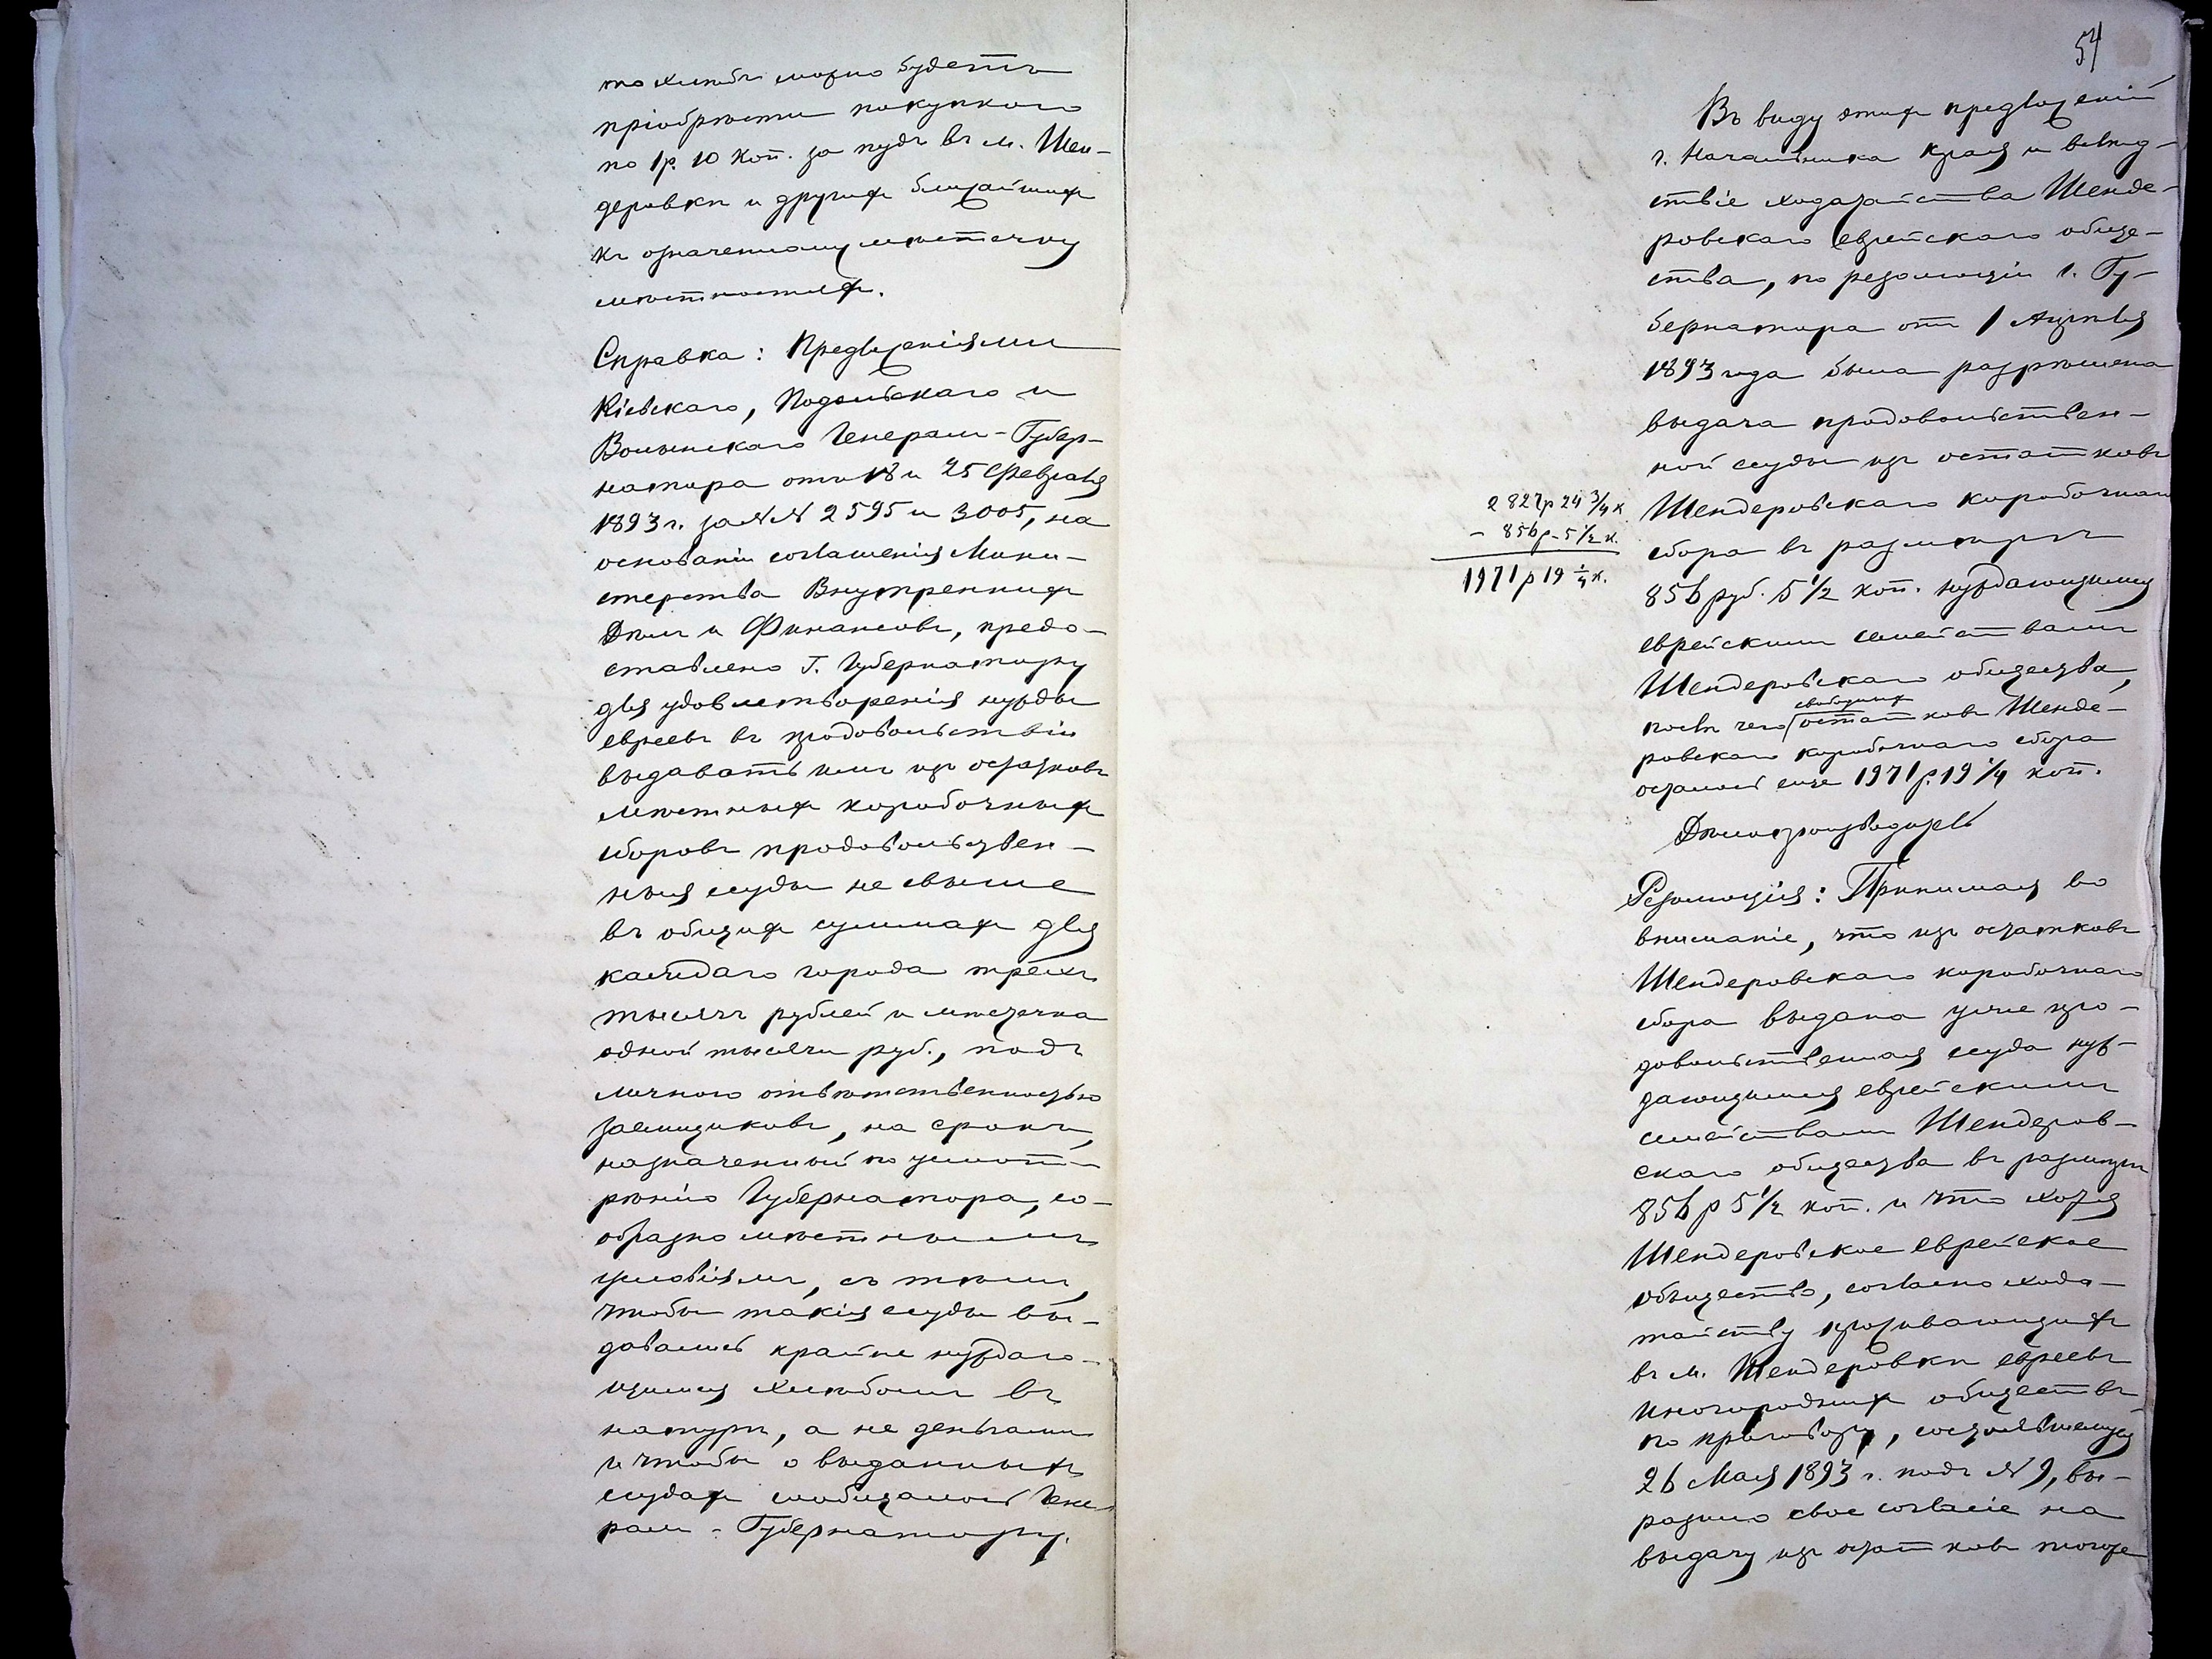 то хлѣбъ можно будетъ
пріобрѣсти покупкою
по 1 р. 10 коп. за пудъ въ м. Шен-
деровкѣ и другихъ ближайшихъ
къ означенному мѣстечку
мѣстностяхъ.
Справка: Предложеніями
Кіевскаго, Подольскаго и
Волынскаго Генералъ-Губер-
натора отъ 18 и 25 Февраля
1893 г. за №№ 2595 и 3005, на
основаніи соглашенія Мини-
стерства Внутреннихъ
Дѣлъ и Финансовъ, предо-
ставлено Г. Губернатору
для удовлетворенія нужды
евреевъ въ продовольствіи
выдавать имъ изъ остатковъ
мѣстныхъ коробочныхъ
сборовъ продовольствен-
ныя ссуды не свыше
въ общихъ суммахъ для
каждаго города трехъ
тысячъ рублей и мѣстечка
одной тысячи руб., подъ
личною отвѣтственностью
заемщиковъ, на срокъ,
назначенный по усмот-
рѣнію Губернатора, со-
образно мѣстнымъ
условіямъ, съ тѣмъ,
чтобы такія ссуды вы-
давались крайне нуждаю-
щимся хлѣбомъ въ
натурѣ, а не деньгами
и чтобы о выданныхъ
ссудахъ сообщалось Гене-
ралъ-Губернатору.
54
Въ виду этихъ предложеній
г. Начальника края и вслѣд-
ствіе ходатайства Шенде-
ровскаго еврейскаго обще-
ства, по резолюціи г. Гу-
бернатора отъ 1 Апрѣля
1893 года была разрѣшена
выдача продовольствен-
ной ссуды изъ остатковъ
Шендеровскаго коробочнаго
сбора въ размѣрѣ
856 руб. 5 1/2 коп. нуждающимся
еврейскимъ семействамъ
Шендеровскаго общества,
послѣ чего свободныхъ остатковъ Шенде-
ровскаго коробочнаго сбора
осталось еще 1971 р. 19 1/4 коп.
2827 р 24 3/4 к
– 856 р – 5 1/2 к.
1971 р 19 1/4 к.
Дѣлопроизводитель
Резолюція: Принимая во
вниманіе, что изъ остатковъ
Шендеровскаго коробочнаго
сбора выдана уже про-
довольственная ссуда нуж-
дающимся еврейскимъ
семействамъ Шендеров-
скаго общества въ размѣрѣ
856 р 5 1/2 коп. и что хотя
Шендеровское еврейское
общество, согласно хода-
тайству проживающихъ
въ м. Шендеровкѣ евреевъ
иногородныхъ обществъ
по приговору, состоявшемуся
26 Мая 1893 г. подъ № 9, вы-
разило свое согласіе на
выдачу изъ остатковъ того же